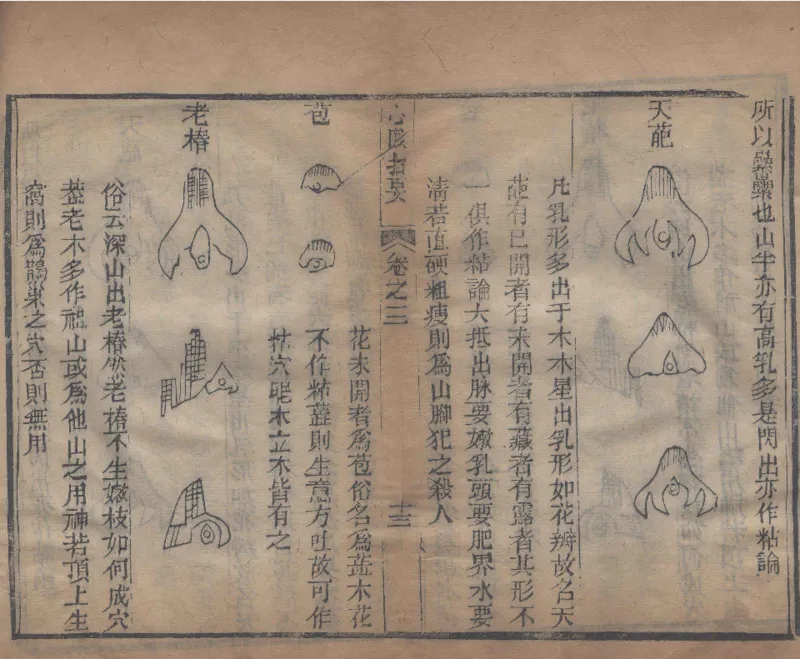 所以疊疊也山牛亦有高乳多是閃出亦作粘論
天葩
凡乳形多出于木木星出乳形如花瓣故名天
葩有已開者有未開者有藏者有露者其形不
一俱作粘論大抵出脉要嫩乳頭要肥界水要
淸若直硬粗瘦則爲山腳犯之殺人
心眼指要
卷之三
十三
苞
花未開者爲苞俗名爲蕋木花
不作粘蕋則生意方吐故可作
粘穴眠木立木皆有之
老椿
俗云深山出老椿然老椿不生嫩枝如何成穴
葢老木多作祖山或爲他山之用神若頂上生
窩則爲鵲巢之穴否則無用